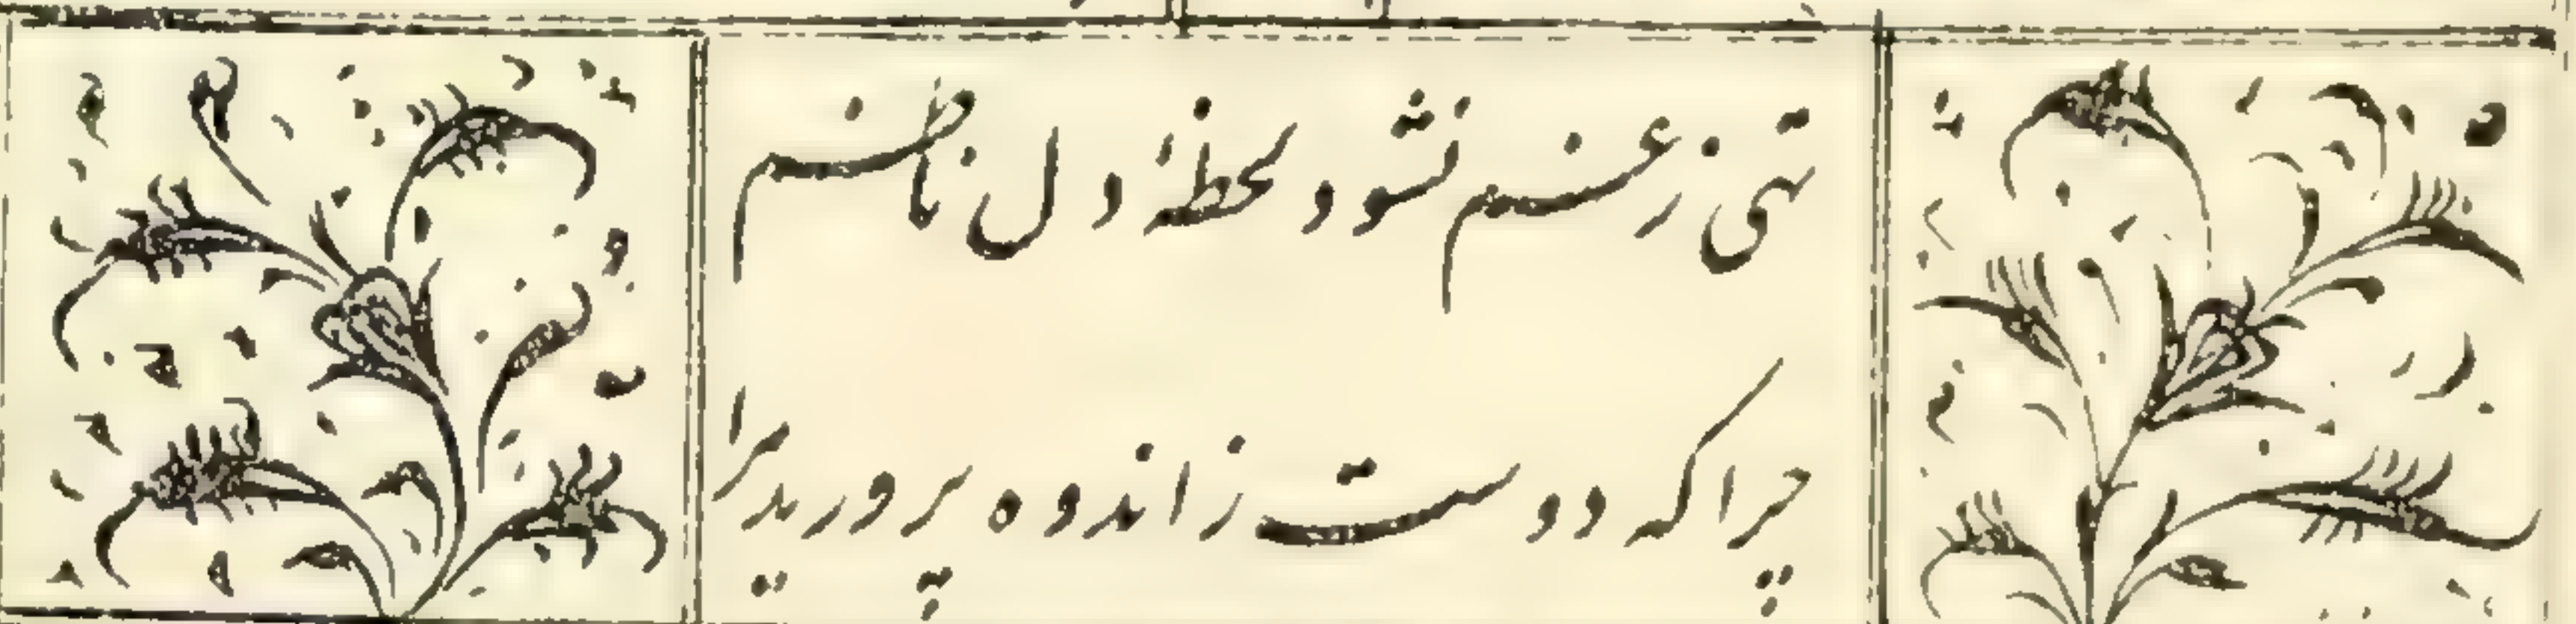 تهی ز غم نشود لحظهٔ دل ناظم
چرا که دوست ز اندوه پرورید مرا